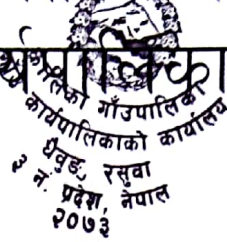 कालिका गाँउपालिका
कार्यपालिकाको कार्यालय
धैवुङ, रसुवा
३ नं. प्रदेश, नेपाल
२०७३